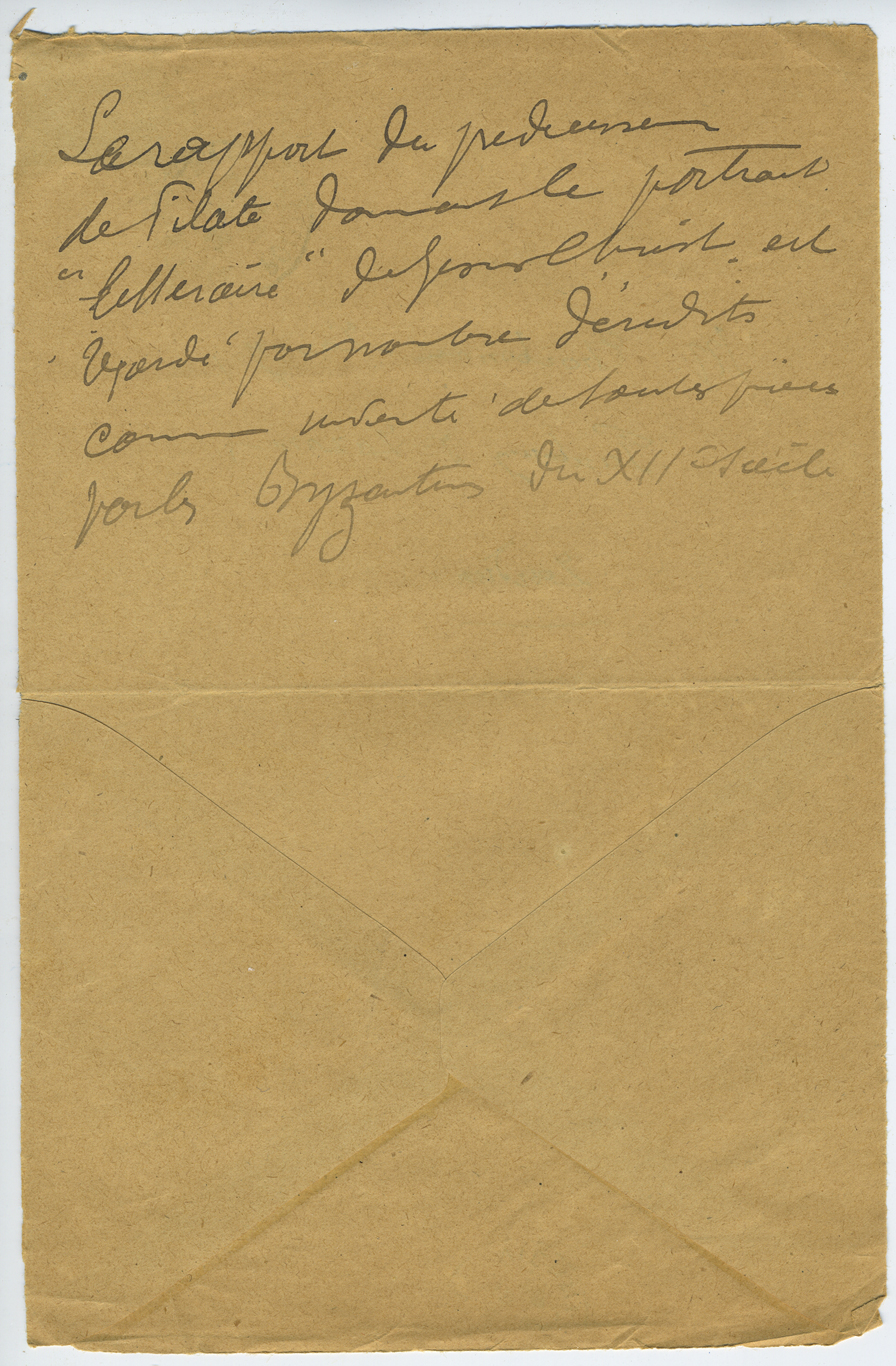 Le rapport du predecesseur
de Pilate donnant le portrait
"litteraire" de Jesus Christ est
regardé par nombre d'érudits
comme inventé de toutes pièces
par les Byzantins du XIIe siècle